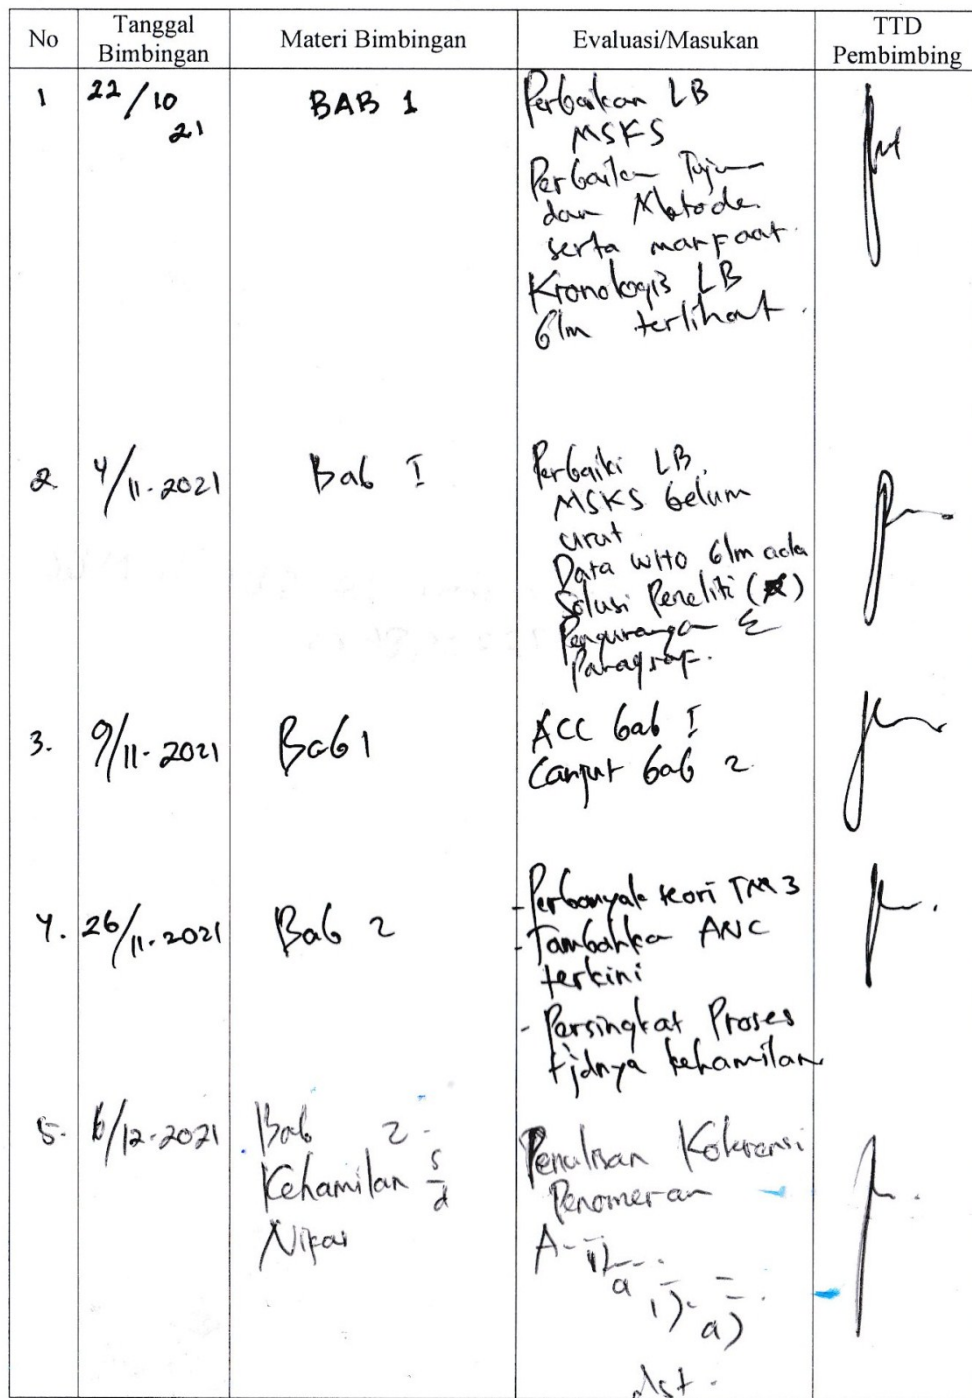 No Tanggal Bimbingan Materi Bimbingan Evaluasi/Masukan TTD Pembimbing
1 22/10 21 BAB 1 Perbaikan LB
MSKS
Perbaikan Tujuan
dan Metode
serta manfaat.
Kronologis LB
blm terlihat.
2 4/11-2021 Bab I Perbaiki LB.
MSKS belum
urut
Data WHO blm ada
Solusi Peneliti (*)
Pengurangan
Paragraf.
3. 9/11-2021 Bab 1 ACC bab I
Lanjut bab 2
4. 26/11-2021 Bab 2 - Perbanyak teori TM 3
- Tambahka ANC
terkini
- Persingkat Proses
tjdnya kehamilan
5. 6/12-2021 Bab 2 - Penulisan
Kehamilan s/d Penomeran
Nifas A-
a 1). a)
dst.